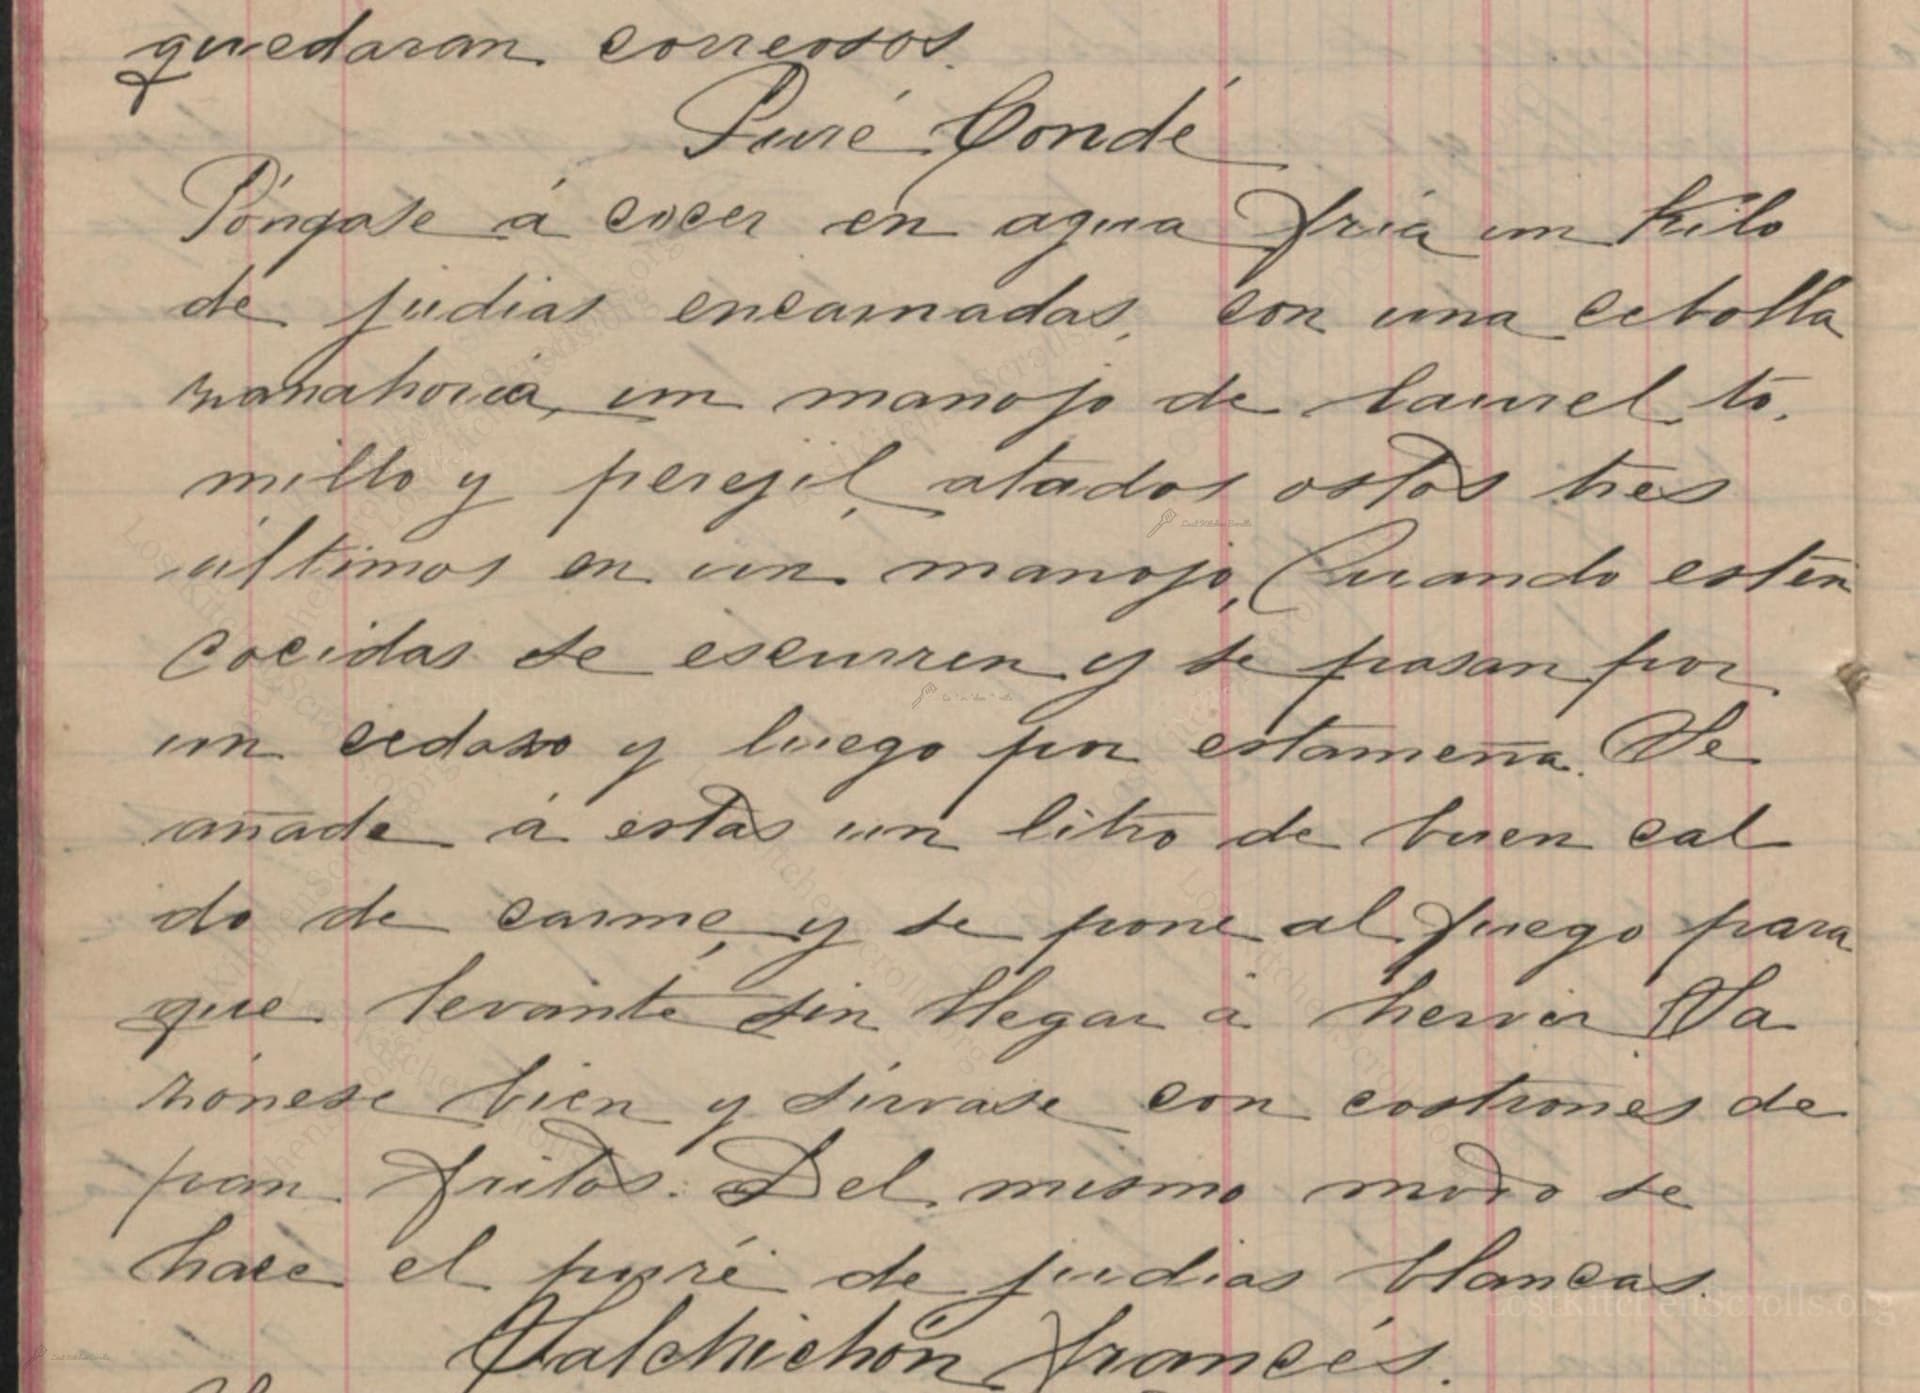 quedaran correosos.
Puré Condé
Póngase á cocer en agua fría un Kilo
de judias encarnadas, con una cebolla
zanahoria, un manojo de laurel to.
millo y perejil, atados estos tres
últimos en un manojo, Cuando estén
cocidas se escurren y se pasan por
un cedazo y luego por estameña. Se
añade á estas un litro de buen cal
do de carne, y se pone al fuego para
que levante sin llegar á hervir Sa
zónese bien y sírvase con costrones de
pan fritos. Del mismo modo se
hace el puré de judias blancas.
Salchichón francés.
LostKitchenScrolls.org